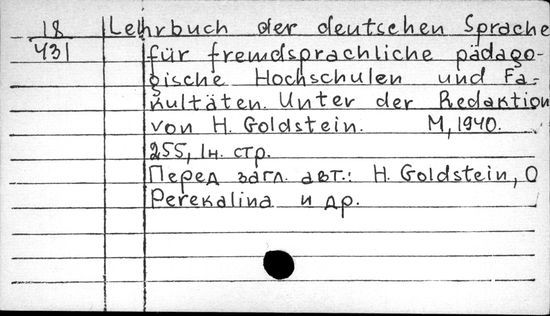 18 Lehrbuch der deutschen Sprache
431 für fremdsprachliche pädago-
gische Hochschulen und Fa-
kultäten. Unter der Redaktion
von H. Goldstein. M, 1940.
255, 1н. стр.
Перед загл. авт.: H. Goldstein, O
Perekalina и др.